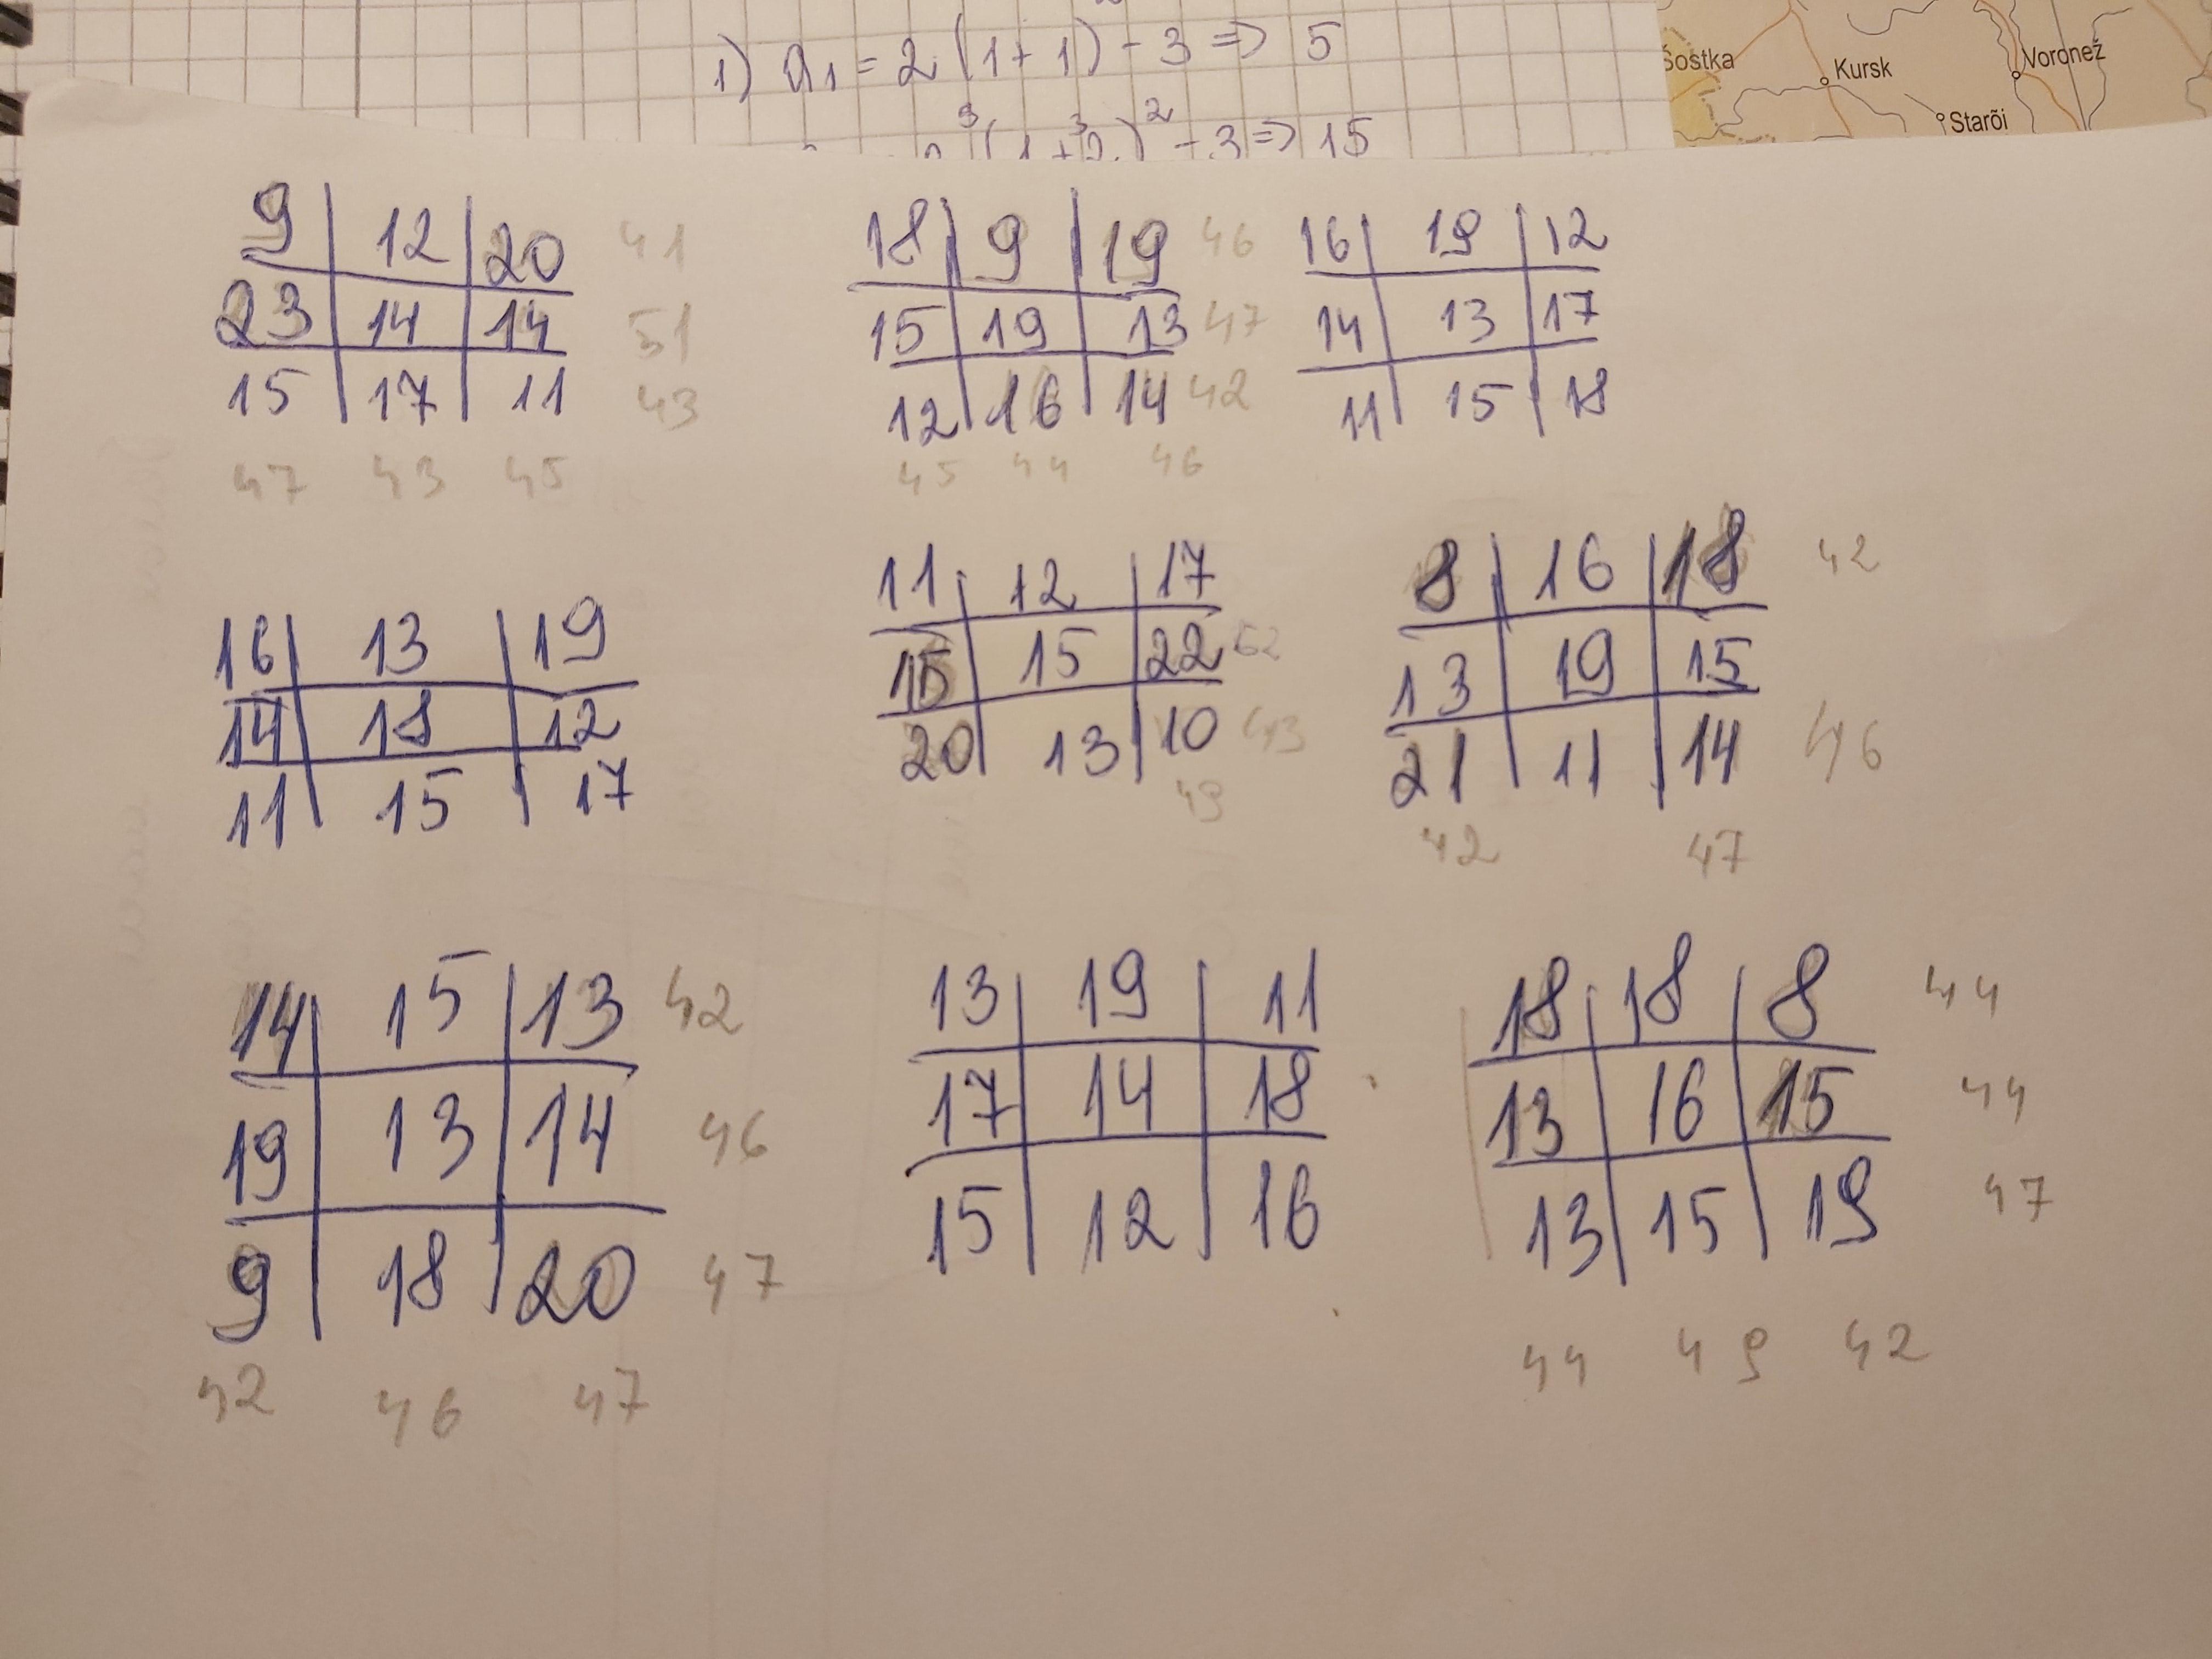 1) a₁ = 2 (1+1) - 3 => 5
Šostka
Kursk
Voronež
(1+2)² - 3 => 15
Starõi
9 12 20 41
23 14 14 51
15 17 11 43
47 43 45
18 9 19 46
15 19 13 47
12 16 14 42
45 44 46
16 19 12
14 13 17
11 15 18
16 13 19
14 18 12
11 15 17
11 12 17
15 15 22 52
20 13 10 43
49
8 16 18 42
13 19 15
21 11 14 46
42 47
14 15 13 42
19 13 14 46
9 18 20 47
42 46 47
13 19 11
17 14 18
15 12 16
18 18 8 44
13 16 15 44
13 15 19 47
44 49 42